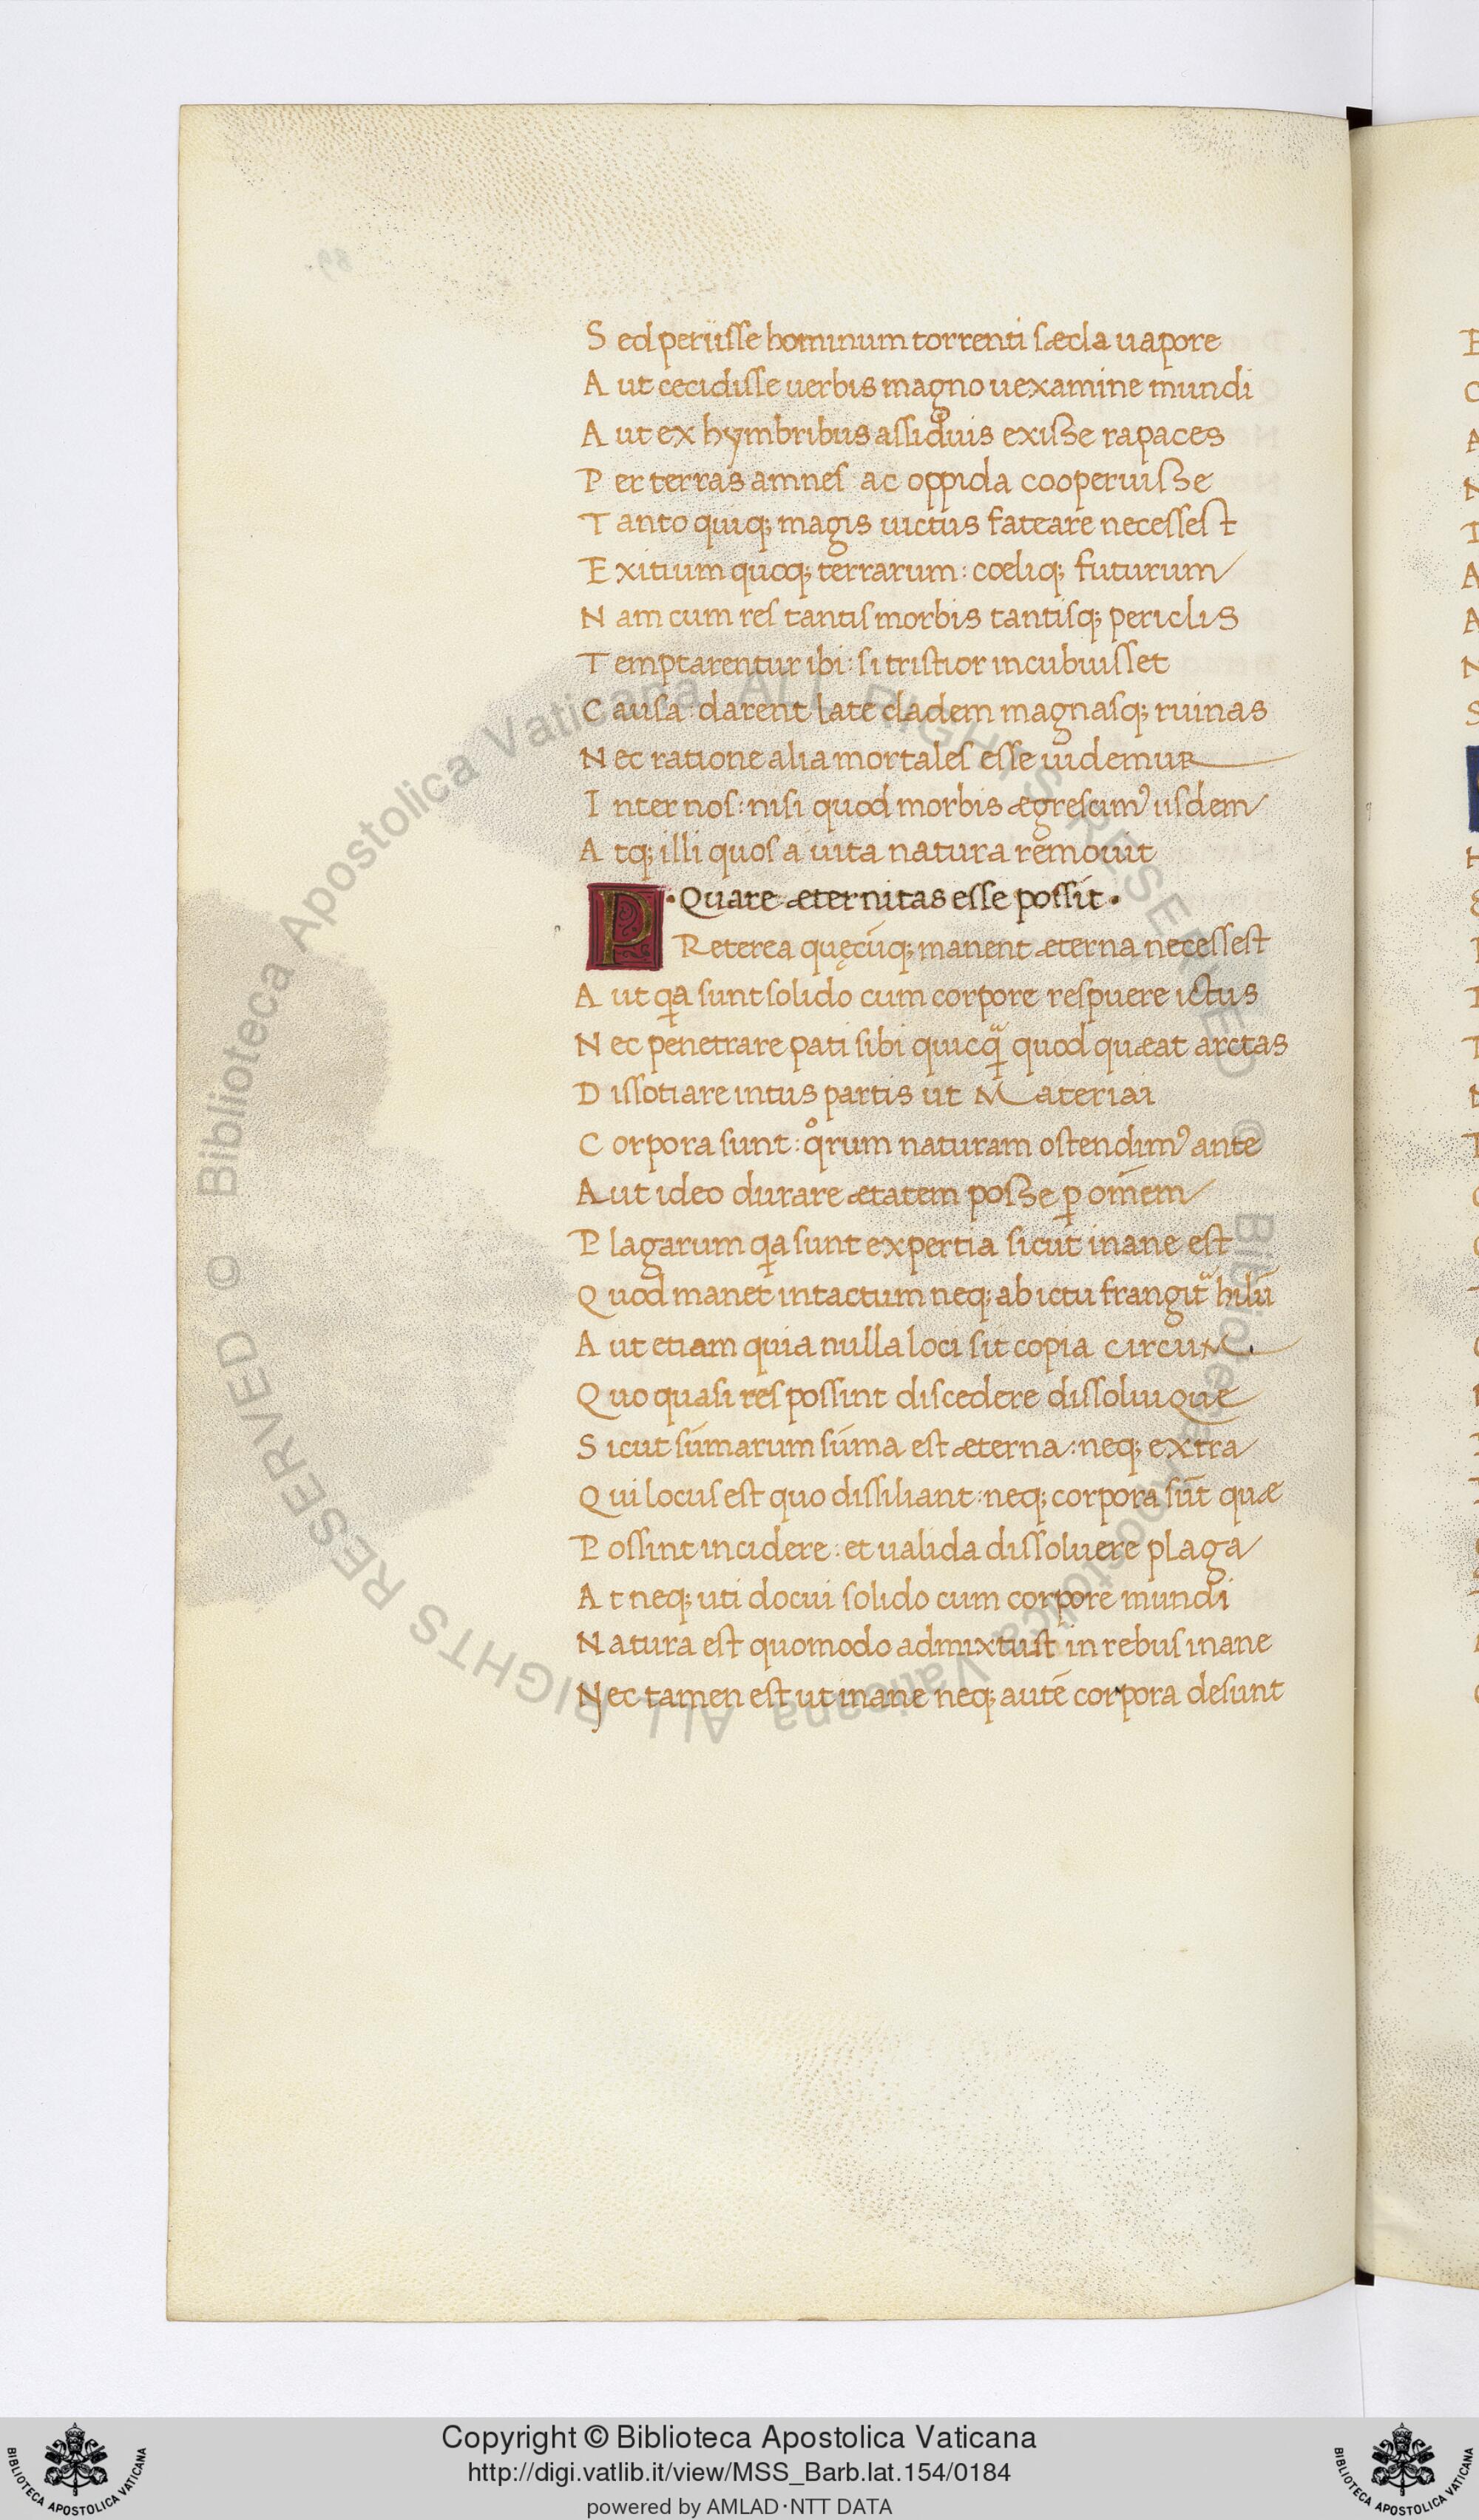 S ed periisse hominum torrenti sæcla uapore
A ut cecidisse uerbis magno uexamine mundi
A ut ex hymbribus assiduis exisse rapaces
P er terras amnes ac oppida cooperuisse
T anto quiq; magis uictus fateare necessest
E xitium quoq; terrarum : cœliq; futurum
N am cum res tantis morbis tantisq; periclis
T emptarentur ibi : si tristior incubuisset
C ausa : darent late cladem magnasq; ruinas
N ec ratione alia mortales esse uidemur
I nter nos : nisi quod morbis ægrescimꝰ iisdem
A tq; illi quos a uita natura remouit
P · Quare æternitas esse possit ·
Reterea quęcūq; manent æterna necessest
A ut qa sunt solido cum corpore respuere ictus
N ec penetrare pati sibi quicq̄ quod quæat arctas
D issotiare intus partis ut Materiai
C orpora sunt : qͦrum naturam ostendimꝰ ante
A ut ideo durare ætatem posse ꝑ om̄em
P lagarum qa sunt expertia sicut inane est
Q uod manet intactum neq; ab ictu frangit᷑ hilū
A ut etiam quia nulla loci sit copia circum
Q uo quasi res possint discedere dissoluique
S icut sūmarum sūma est æterna : neq; extra
Q ui locus est quo dissiliant : neq; corpora sūt quæ
P ossint incidere : et ualida dissoluere plaga
A t neq; uti docui solido cum corpore mundi
N atura est quomodo admixtust in rebus inane
N ec tamen est ut inane neq; autē corpora desunt
Copyright © Biblioteca Apostolica Vaticana
http://digi.vatlib.it/view/MSS_Barb.lat.154/0184
powered by AMLAD·NTT DATA
BIBLIOTECA APOSTOLICA VATICANA
BIBLIOTECA APOSTOLICA VATICANA
© Biblioteca Apostolica Vaticana ALL RIGHTS RESERVED
© Biblioteca Apostolica Vaticana ALL RIGHTS RESERVED